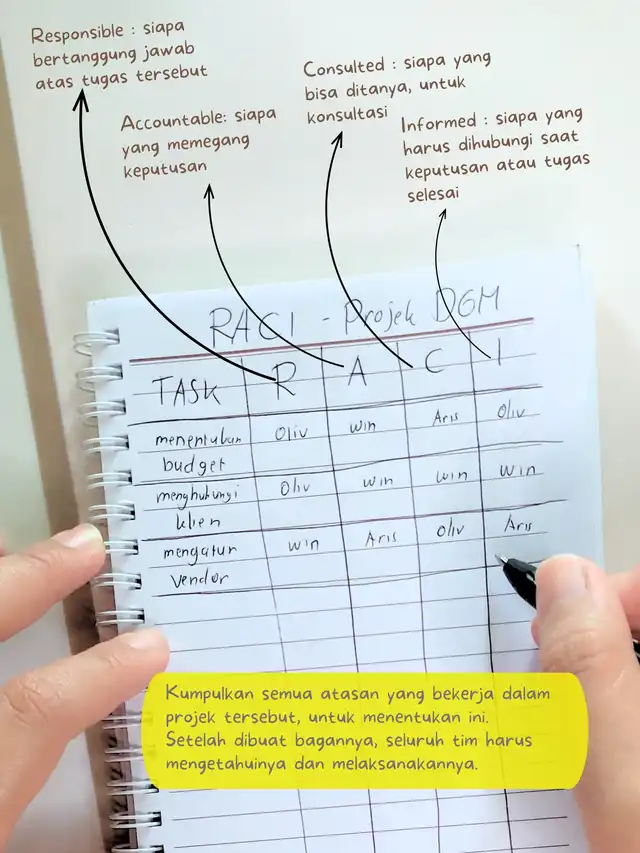 Responsible : siapa
bertanggung jawab
atas tugas tersebut
Accountable: siapa
yang memegang
keputusan
Consulted : siapa yang
bisa ditanya, untuk
konsultasi
Informed : siapa yang
harus dihubungi saat
keputusan atau tugas
selesai
RACI - Projek DGM
TASK R A C I
menentukan Oliv Win Aris Oliv
budget
menghubungi Oliv Win Win Win
klien
mengatur Win Aris Oliv Aris
vendor
Kumpulkan semua atasan yang bekerja dalam
projek tersebut, untuk menentukan ini.
Setelah dibuat bagannya, seluruh tim harus
mengetahuinya dan melaksanakannya.